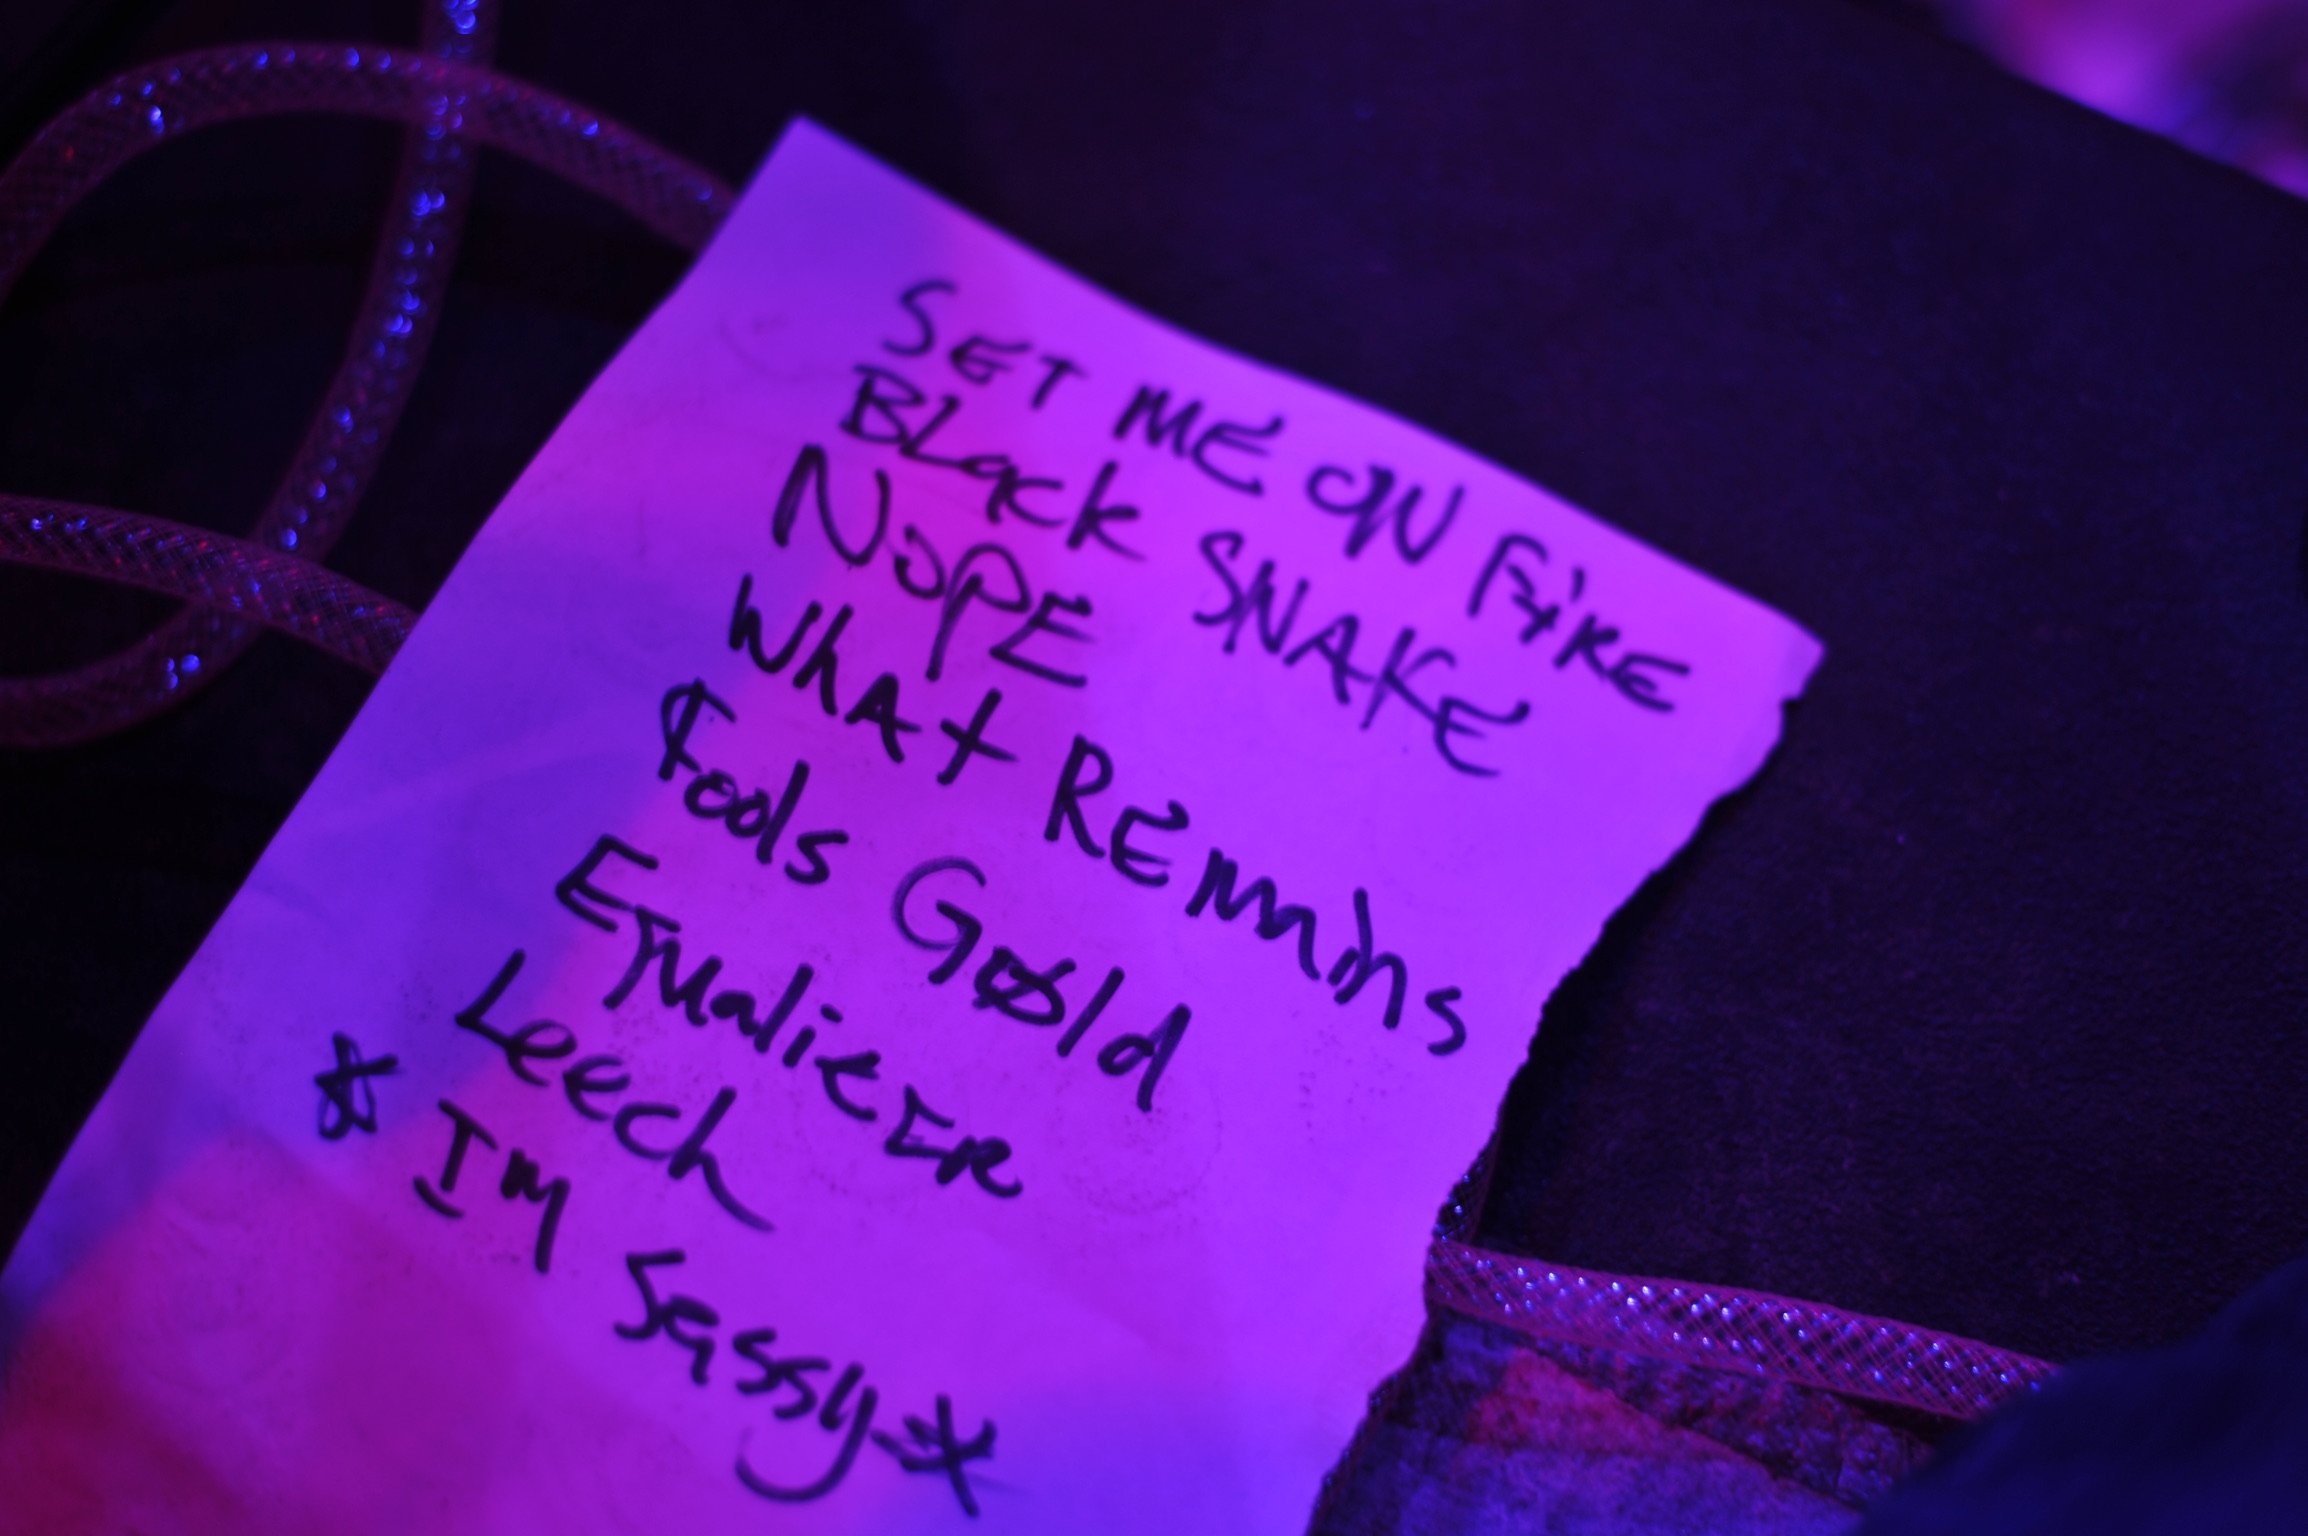 SET ME ON FiRE
BLack SNAKE
NoPE
WhAt REmains
Fools Gold
EqualizER
Leech
* I'm Sassy *